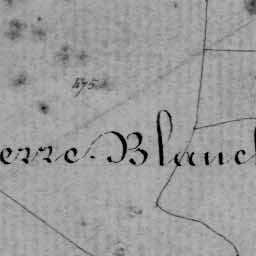 475
erre Blanc